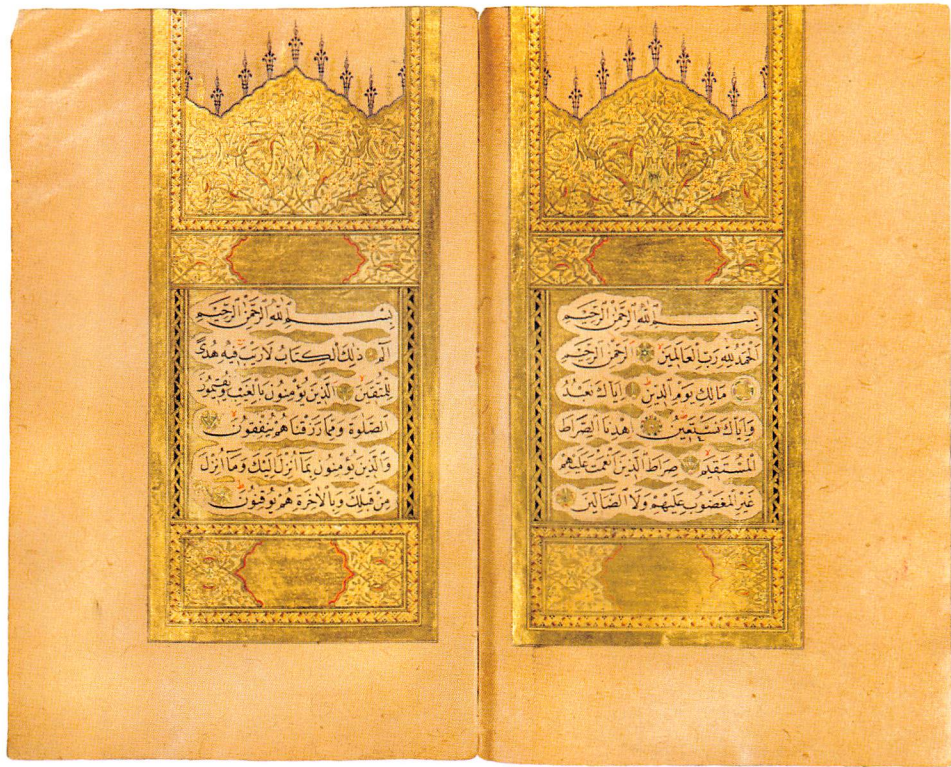 بِسْمِ اللّٰهِ الرَّحْمٰنِ الرَّحِيمِ
اَلْحَمْدُ لِلّٰهِ رَبِّ الْعَالَمِينَ اَلرَّحْمٰنِ الرَّحِيمِ
مَالِكِ يَوْمِ الدِّينِ اِيَّاكَ نَعْبُدُ
وَاِيَّاكَ نَسْتَعِينُ اِهْدِنَا الصِّرَاطَ
الْمُسْتَقِيمَ صِرَاطَ الَّذِينَ اَنْعَمْتَ عَلَيْهِمْ
غَيْرِ الْمَغْضُوبِ عَلَيْهِمْ وَلَا الضَّالِّينَ
بِسْمِ اللّٰهِ الرَّحْمٰنِ الرَّحِيمِ
الٓمٓ ذٰلِكَ الْكِتَابُ لَا رَيْبَ فِيهِ هُدًى
لِلْمُتَّقِينَ اَلَّذِينَ يُؤْمِنُونَ بِالْغَيْبِ وَيُقِيمُونَ
الصَّلٰوةَ وَمِمَّا رَزَقْنَاهُمْ يُنْفِقُونَ
وَالَّذِينَ يُؤْمِنُونَ بِمَٓا اُنْزِلَ اِلَيْكَ وَمَٓا اُنْزِلَ
مِنْ قَبْلِكَ وَبِالْاٰخِرَةِ هُمْ يُوقِنُونَ